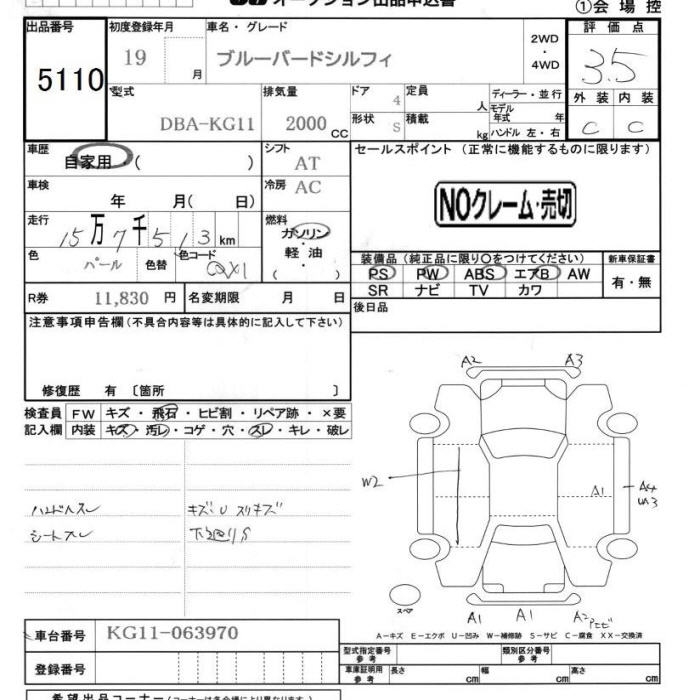 オークション出品申込書
①会場控
出品番号
5110
初度登録年月
19 月
車名・グレード
ブルーバードシルフィ
2WD
・
4WD
評価点
3.5
外装 内装
C C
型式
DBA-KG11
排気量
2000 CC
ドア
4
形状
S
定員
人
積載
kg
ディーラー・並行
モデル
年式 年
ハンドル 左・右
車歴
自家用・( )
シフト
AT
セールスポイント (正常に機能するものに限ります)
車検
年 月( 日)
冷房
AC
NOクレーム・売切
走行
15万7千513km
燃料
ガソリン
・
軽油
・
( )
色
パール
色替
色コード
QX1
装備品(純正品に限り○をつけてください)
PS PW ABS エアB AW
SR ナビ TV カワ
新車保証書
有・無
R券
11,830 円
名変期限 月 日
後日品
注意事項申告欄(不具合内容等は具体的に記入して下さい)
修復歴 有 〔箇所 〕
検査員
記入欄
FW キズ・飛石・ヒビ割・リペア跡・×要
内装 キズ・汚レ・コゲ・穴・スレ・キレ・破レ
ハンドルスレ
シートスレ
キズ・U スリキズ
下廻りS
A2 A3
W2
A1
A4
U3
スペア
A1 A1 A2
A－キズ E－エクボ U－凹み W－補修跡 S－サビ C－腐食 XX－交換済
車台番号
KG11-063970
登録番号
型式指定番号
参考
類別区分番号
参考
車庫証明用
参考
長さ cm
幅 cm
高さ cm
希望出品コーナー(コーナーは各会場により異なります。)